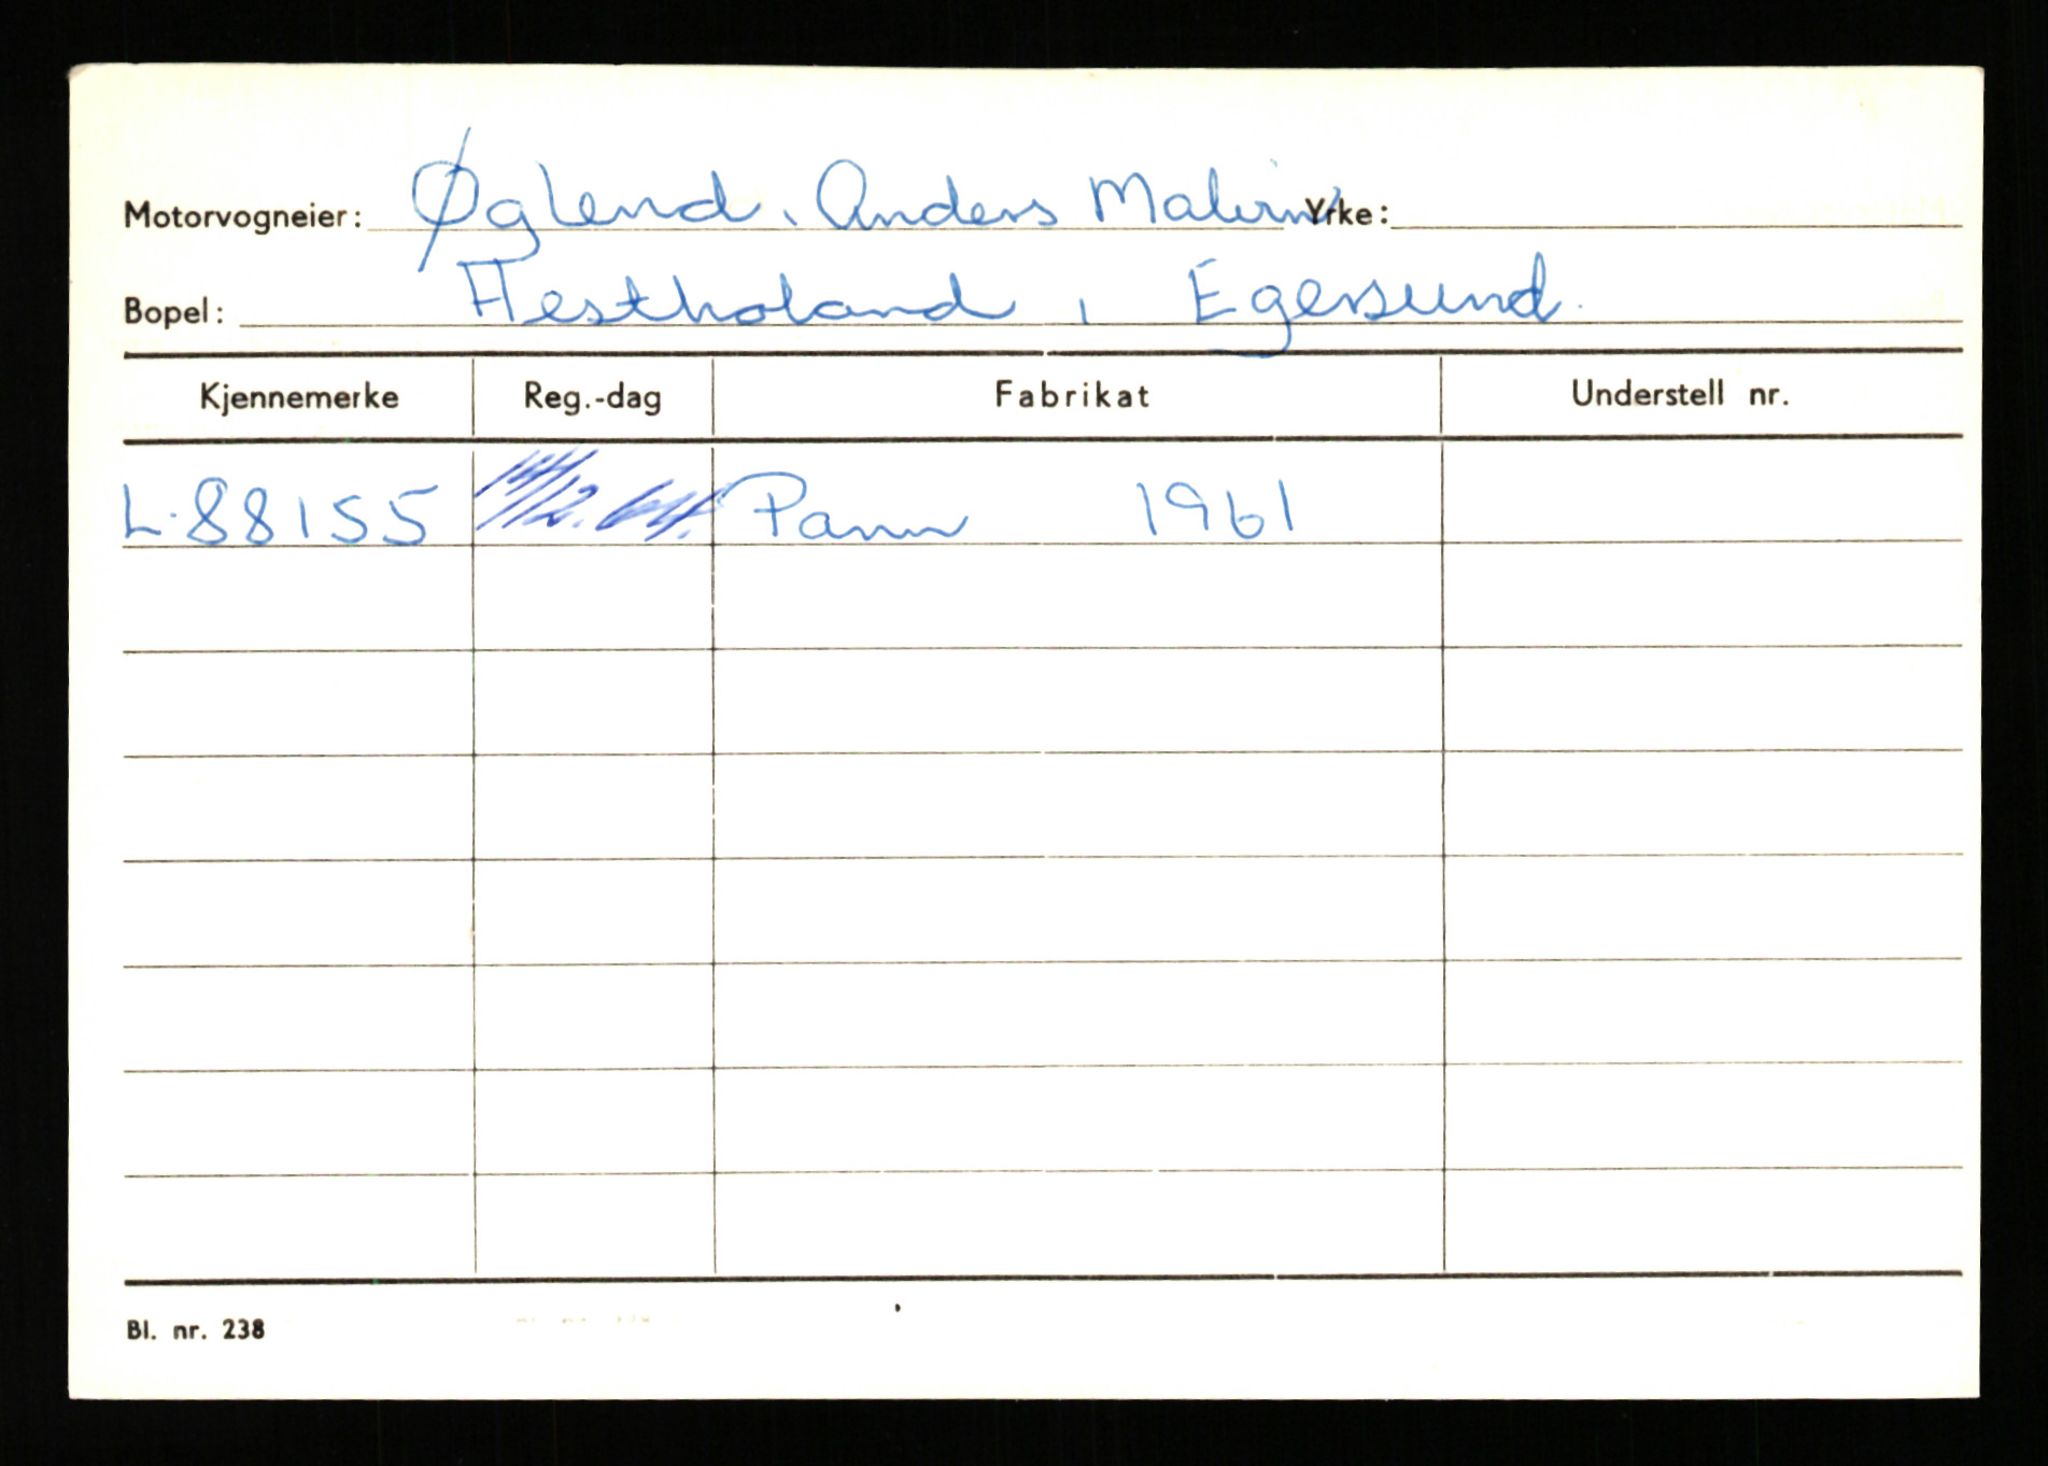 Motorvogneier: Øglend, Anders Malvin Yrke:
Bopel: Hestholand, Egersund.
Kjennemerke Reg.-dag Fabrikat Understell nr.
L-88155 14/12.64. Pann 1961
Bl. nr. 238